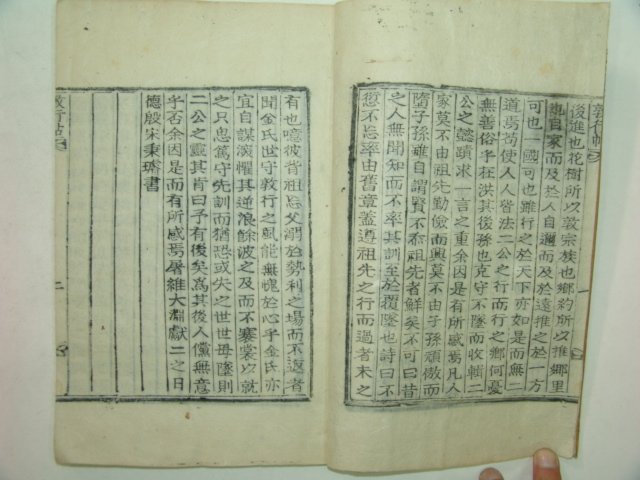 敦行帖
後進也花樹所以敦宗族也鄉約所以推鄉里
也自家而及於人自邇而及於遠推之於一方
可也一國可也雖行之於天下亦如是而無二
道焉苟使人人皆法二公之行而行之鄉何憂
無善俗乎枉淇其後孫也克守不墜而收輯二
公之懿蹟求一言之重余因是有所感焉凡人
家莫不由祖先勤儉而興莫不由子孫頑傲而
墮子孫雖自謂賢不忝祖先者鮮矣不可曰昔
之人無聞知而不率其訓至於覆墜也詩曰不
愆不忘率由舊章蓋遵祖先之行而過者未之
有也噫彼背祖忘父溺於勢利之場而不返者
聞金氏世守敦行之風能無愧於心乎金氏亦
宜自謀演懼其逆浪餘波之及而不褰裳以就
之只思篤守先訓而猶恐或失之世世毋墜則
二公之靈其肯曰予有後矣焉其後人儻無意
乎否余因是而有所感焉屠維大淵獻二之日
德殷宋秉璿書
敦行帖
二